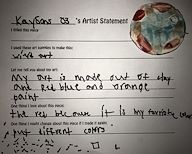 Kaydons 03 's Artist Statement
I titled this piece:
I used these art supplies to make this:
Let me tell you about my art:
My art is made out of clay
and red blue and orange
paint
One thing I love about this piece:
the red be cause it Is my favorite
One thing I might change about this piece if I made it again:
put different colors